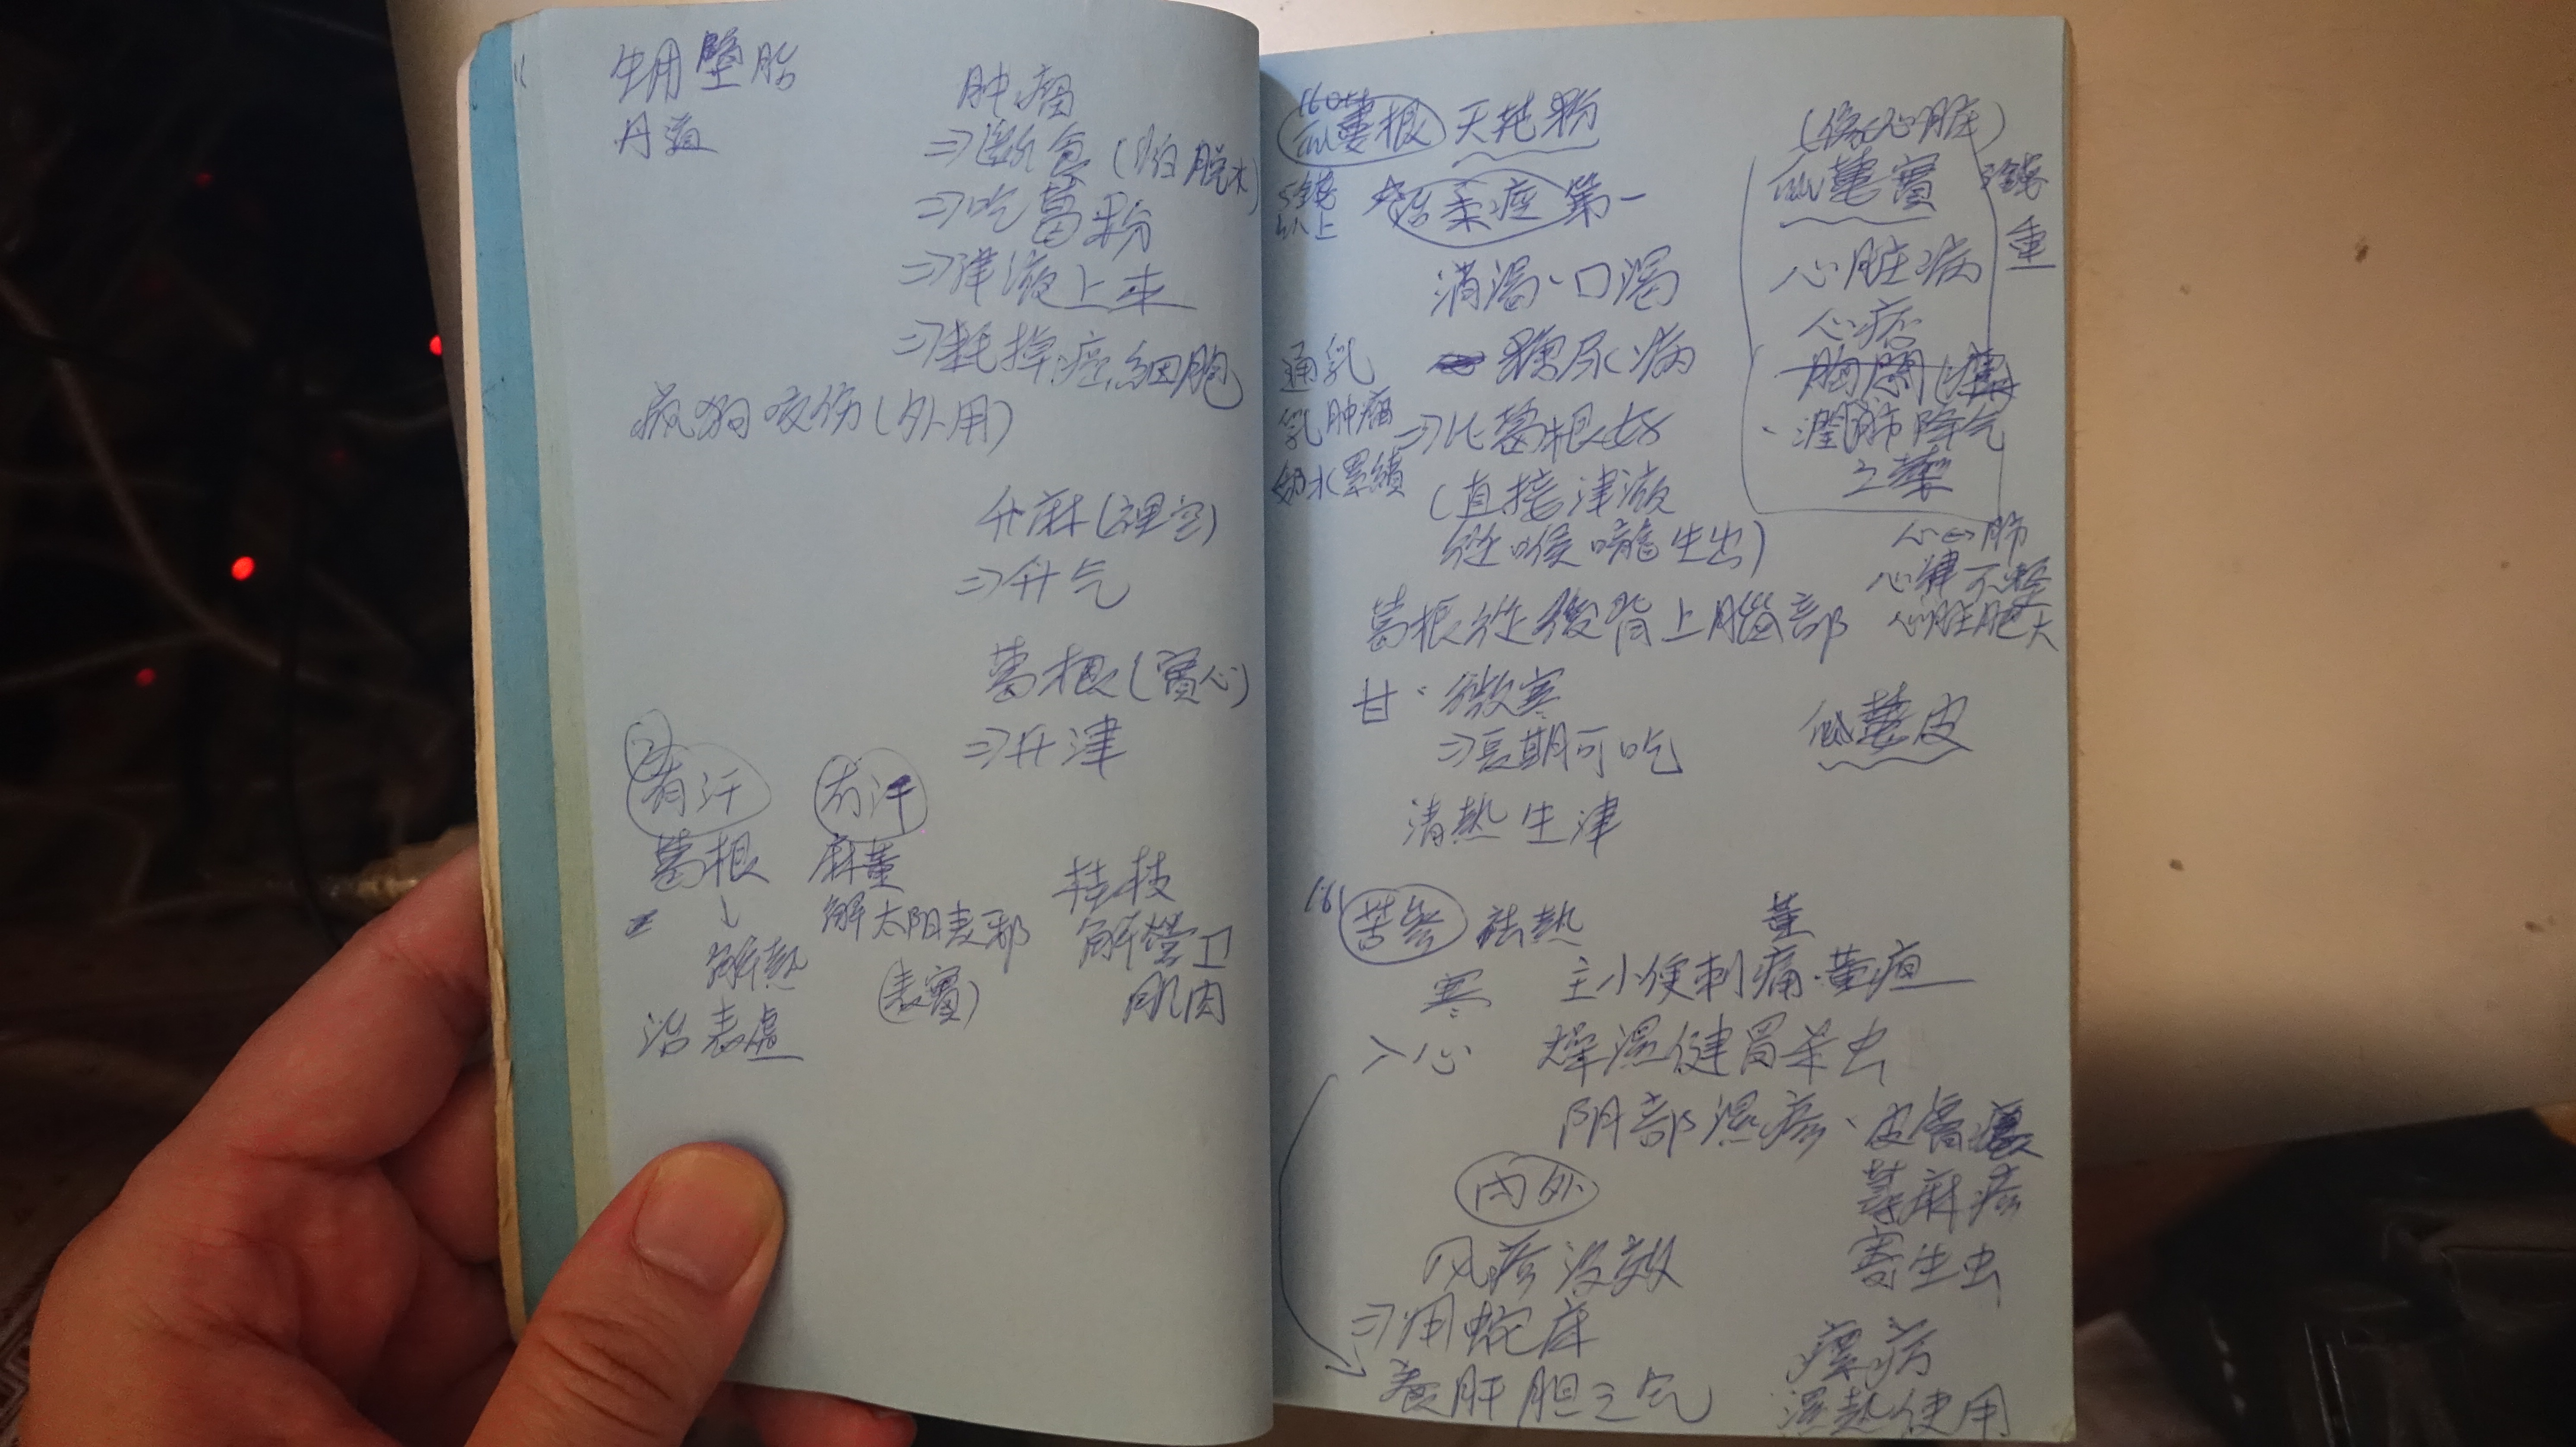 生用墮胎
丹
肿瘤
⇒斷食(怕脫水)
⇒吃葛粉
⇒津液上来
⇒耗掉癌細胞
疯狗咬伤(外用)
升麻(裡空)
⇒升气
葛根(實心)
⇒升津
有汗
葛根
↓
解熱
治表虛
解太阳表邪
(表實)
桂枝
解營卫
肌肉
160
瓜蔞根 天花粉
5錢
以上
治柔痙 第一
消渴、口渴
糖尿病
⇒比葛根好
(直接津液
從喉嚨生出)
通乳
乳肿瘤
奶水累績
葛根從後背上腦部
甘、微寒
⇒長期可吃
清熱生津
(像心脏)
瓜蔞實
錢
重
心脏病
心痞
胸悶
潤肺降气
之藥
心⇔肺
心律不整
心脏肥大
瓜蔞皮
161
苦参 祛熱
寒
入心
黄
主小便刺痛、黄疸
燥湿健胃杀虫
阴部濕疹、皮膚
蕁麻疹
寄生虫
内外
风疹没效
⇒用蛇床
養肝胆之气
濕熱使用